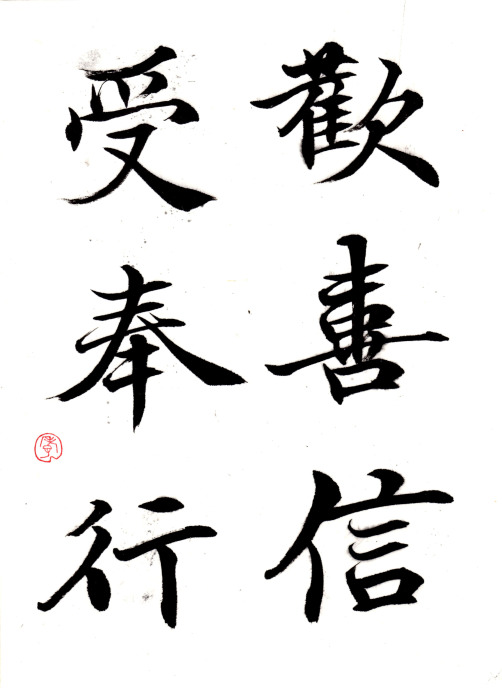 歡喜信
受奉行